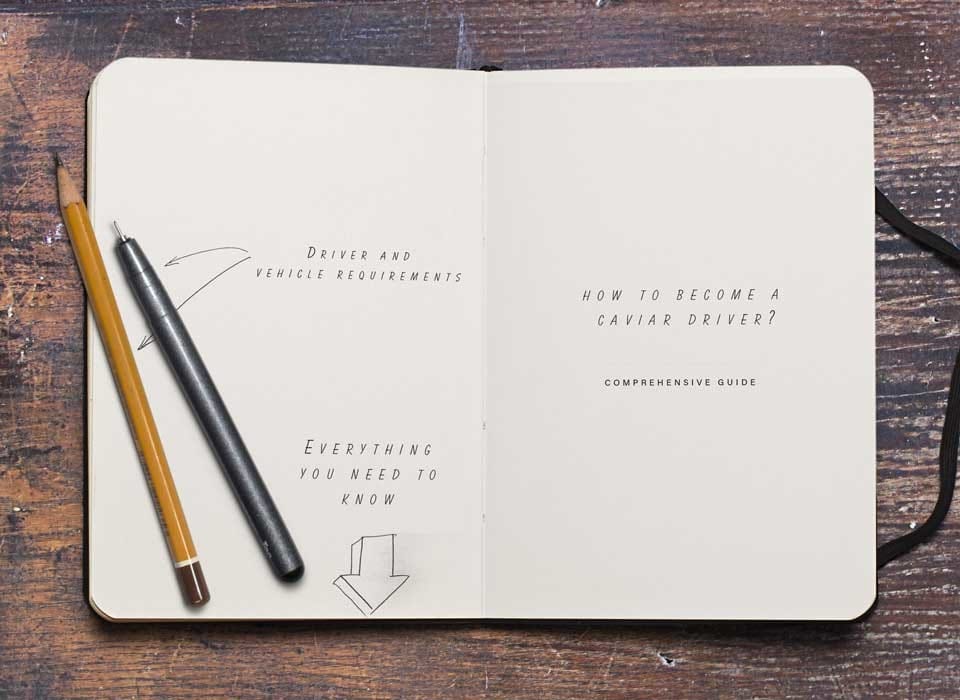 Driver and
vehicle requirements
Everything
you need to
know
how to become a
caviar driver?
COMPREHENSIVE GUIDE